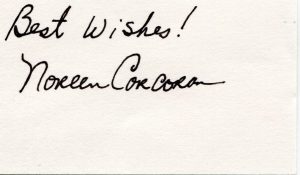 Best Wishes!
Noreen Corcoran